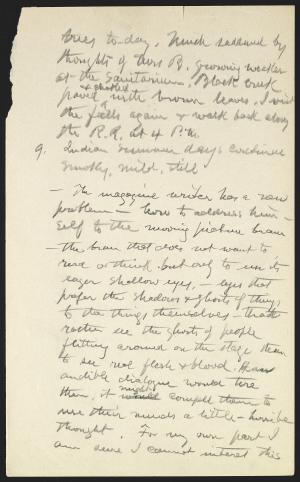 tries to-day. Much saddened by
thoughts of Mrs B. growing weaker
at the Sanitarium. Black creek
paved & choked with brown leaves. I visit
the falls again & walk back along
the R.R. at 4 P.M.
9. Indian Summer days continue
smoky, mild, still
— The magazine writer has a new
problem — how to address him-
self to the moving picture brain
— the brain that does not want to
read or think, but only to use its
eager shallow eyes, — eyes that
prefer the shadows & ghosts of things
to the things themselves — that
rather see the ghosts of people
flitting around on the stage than
to see real flesh & blood.
audible dialogue would tire
them, it might compel them to
use their minds a little — horrible
thought. For my own part I
am sure I cannot interest this